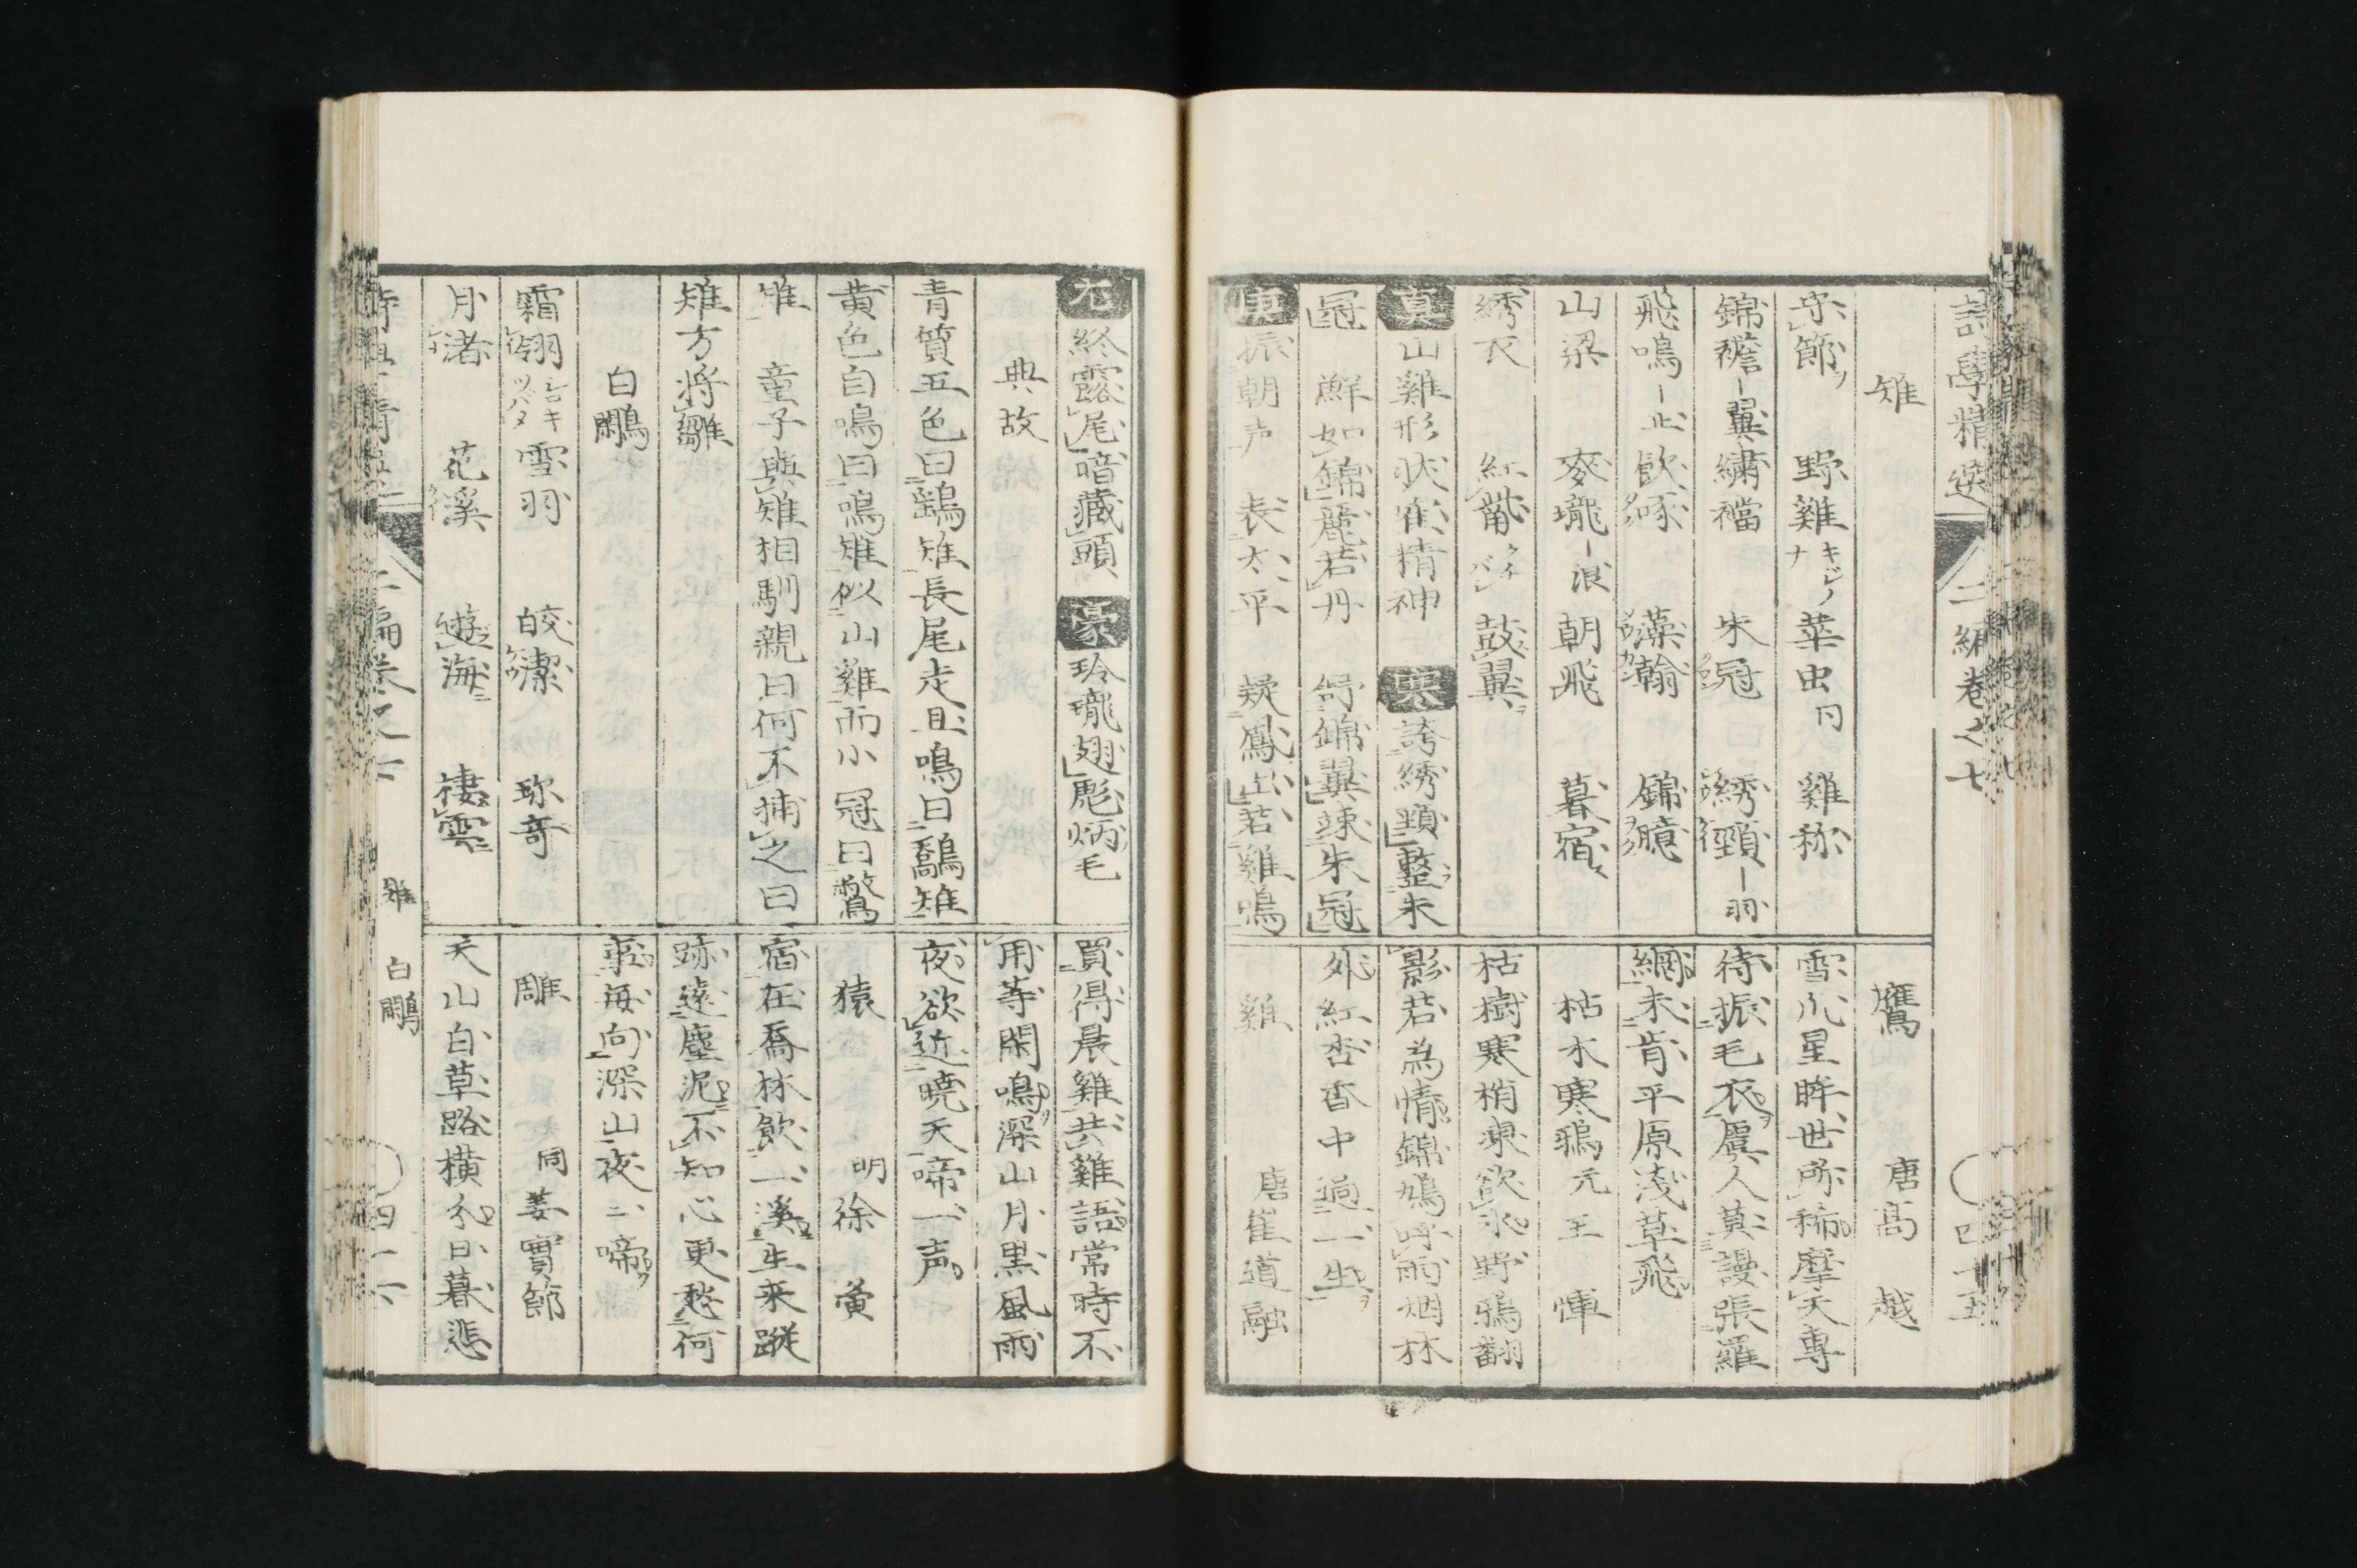 詩學精選 二編卷之七 四十五
雉
守節 野雞 華虫 雞称
錦襜 翼 繍襠 朱冠 綉頸 羽
飛鳴 止 飲啄 藻翰 錦臆
山梁 麥瓏 浪 朝飛 暮宿
綉衣 紅觜 鼓翼
真 山雞形状寉精神 寒 誇綉頸整朱
冠 鮮如錦麗若丹 舒錦翼竦朱冠
庚 振朝声 表太平 疑鳳出若雞鳴
鷹 唐高越
雪爪星眸世所稀摩天專
待振毛衣虞人莫謾張羅
網未肯平原淺草飛
枯木寒鴉 元王惲
枯樹寒梢凍欲氷野鴉翻
影若為情錦鳩呼雨烟林
外紅杏香中過一生
雞 唐崔道融
尤 終露尾喑藏頭 豪 玲瓏翅彪炳毛
典故
青質五色曰鷂雉長尾走且鳴曰鷮雉
黄色自鳴曰鳴雉似山雞而小冠曰鷩
雉 童子與雉相馴親曰何不捕之曰
雉方将雛
白鷴
霜翎 シロキツバサ 雪羽 皎潔 珎竒
月渚 花溪 遊海 棲雲
買得晨雞共雞語常時不
用等閑鳴深山月黒風雨
夜欲近曉天啼一声
猿 明徐黄
宿在喬林飲一溪生来蹤
跡遠塵泥不知心更愁何
事每向深山夜二啼
雕 同姜實節
天山白草路横分日暮悲
二編卷之七 雉 白鷴 四十六